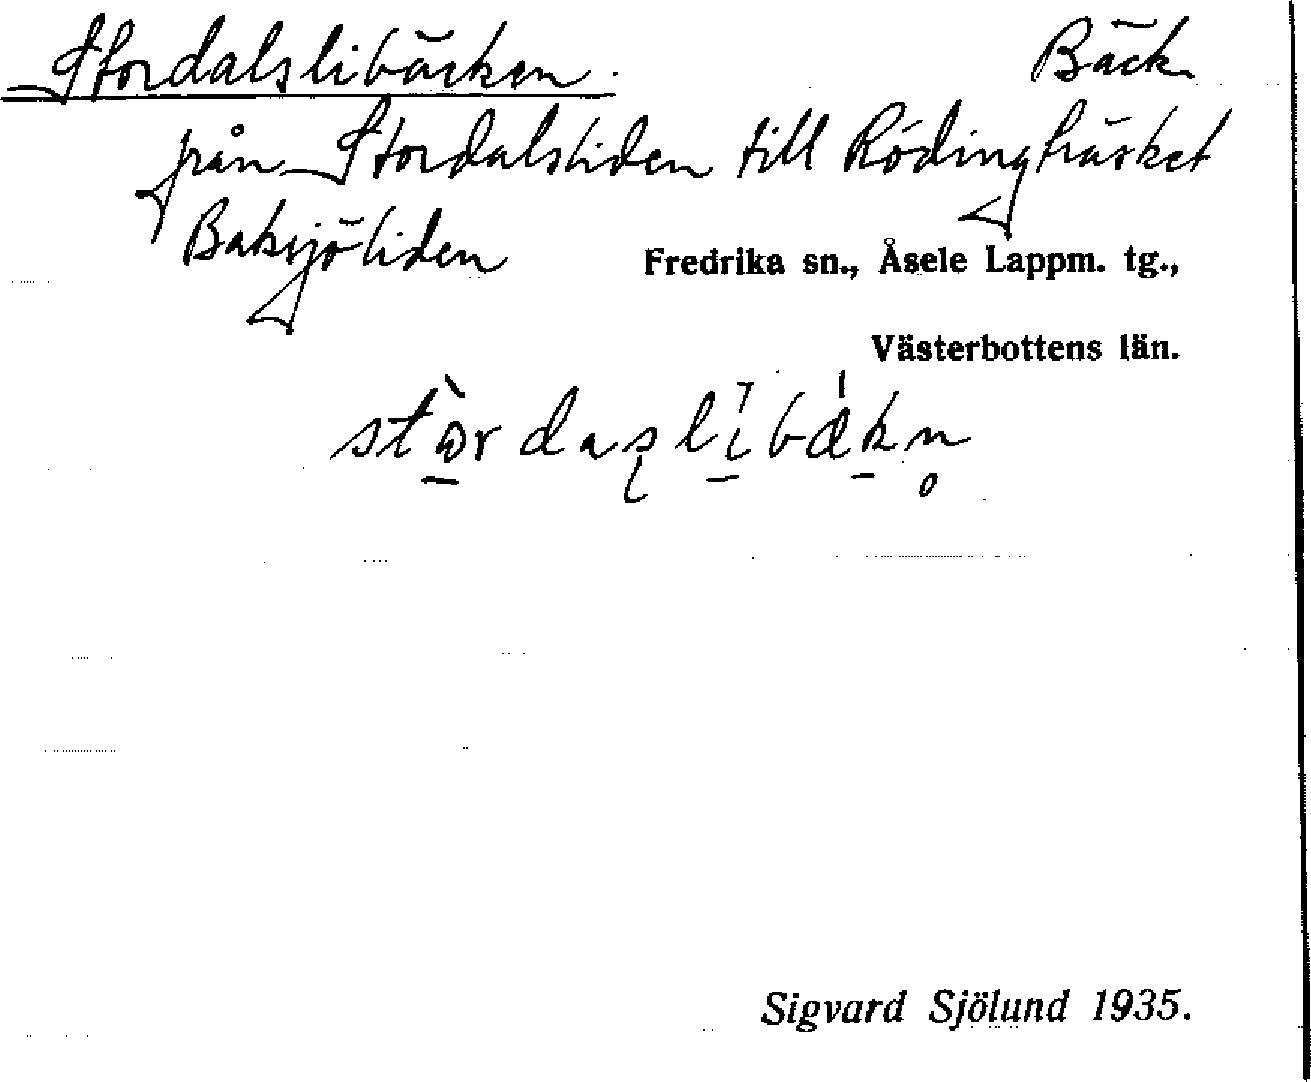 Stordalslibäcken. Bäck
från Stordalsliden till Rödingträsket
Baksjöliden
Fredrika sn., Åsele Lappm. tg.,
Västerbottens län.
Sigvard Sjölund 1935.